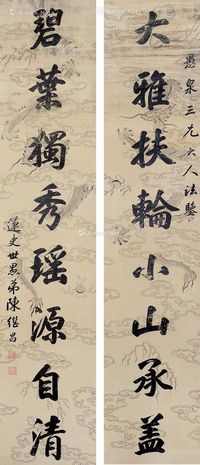 愚泉三兄大人法鑒
大雅扶輪小山承蓋
碧葉獨秀瑶源自清
蓮史世愚弟陳繼昌